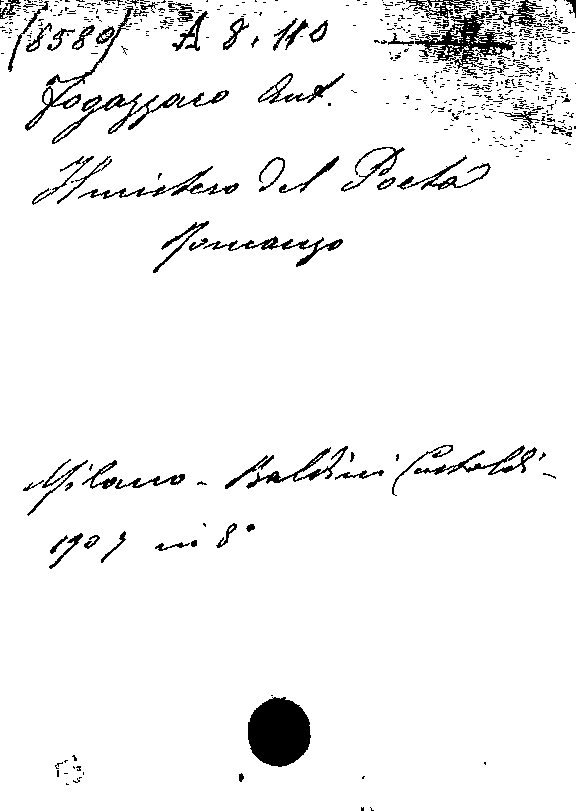 (8589) A 8. 110
Fogazzaro Ant.
Il mistero del Poeta
Romanzo
Milano - Baldini Castoldi -
1907 in 8°